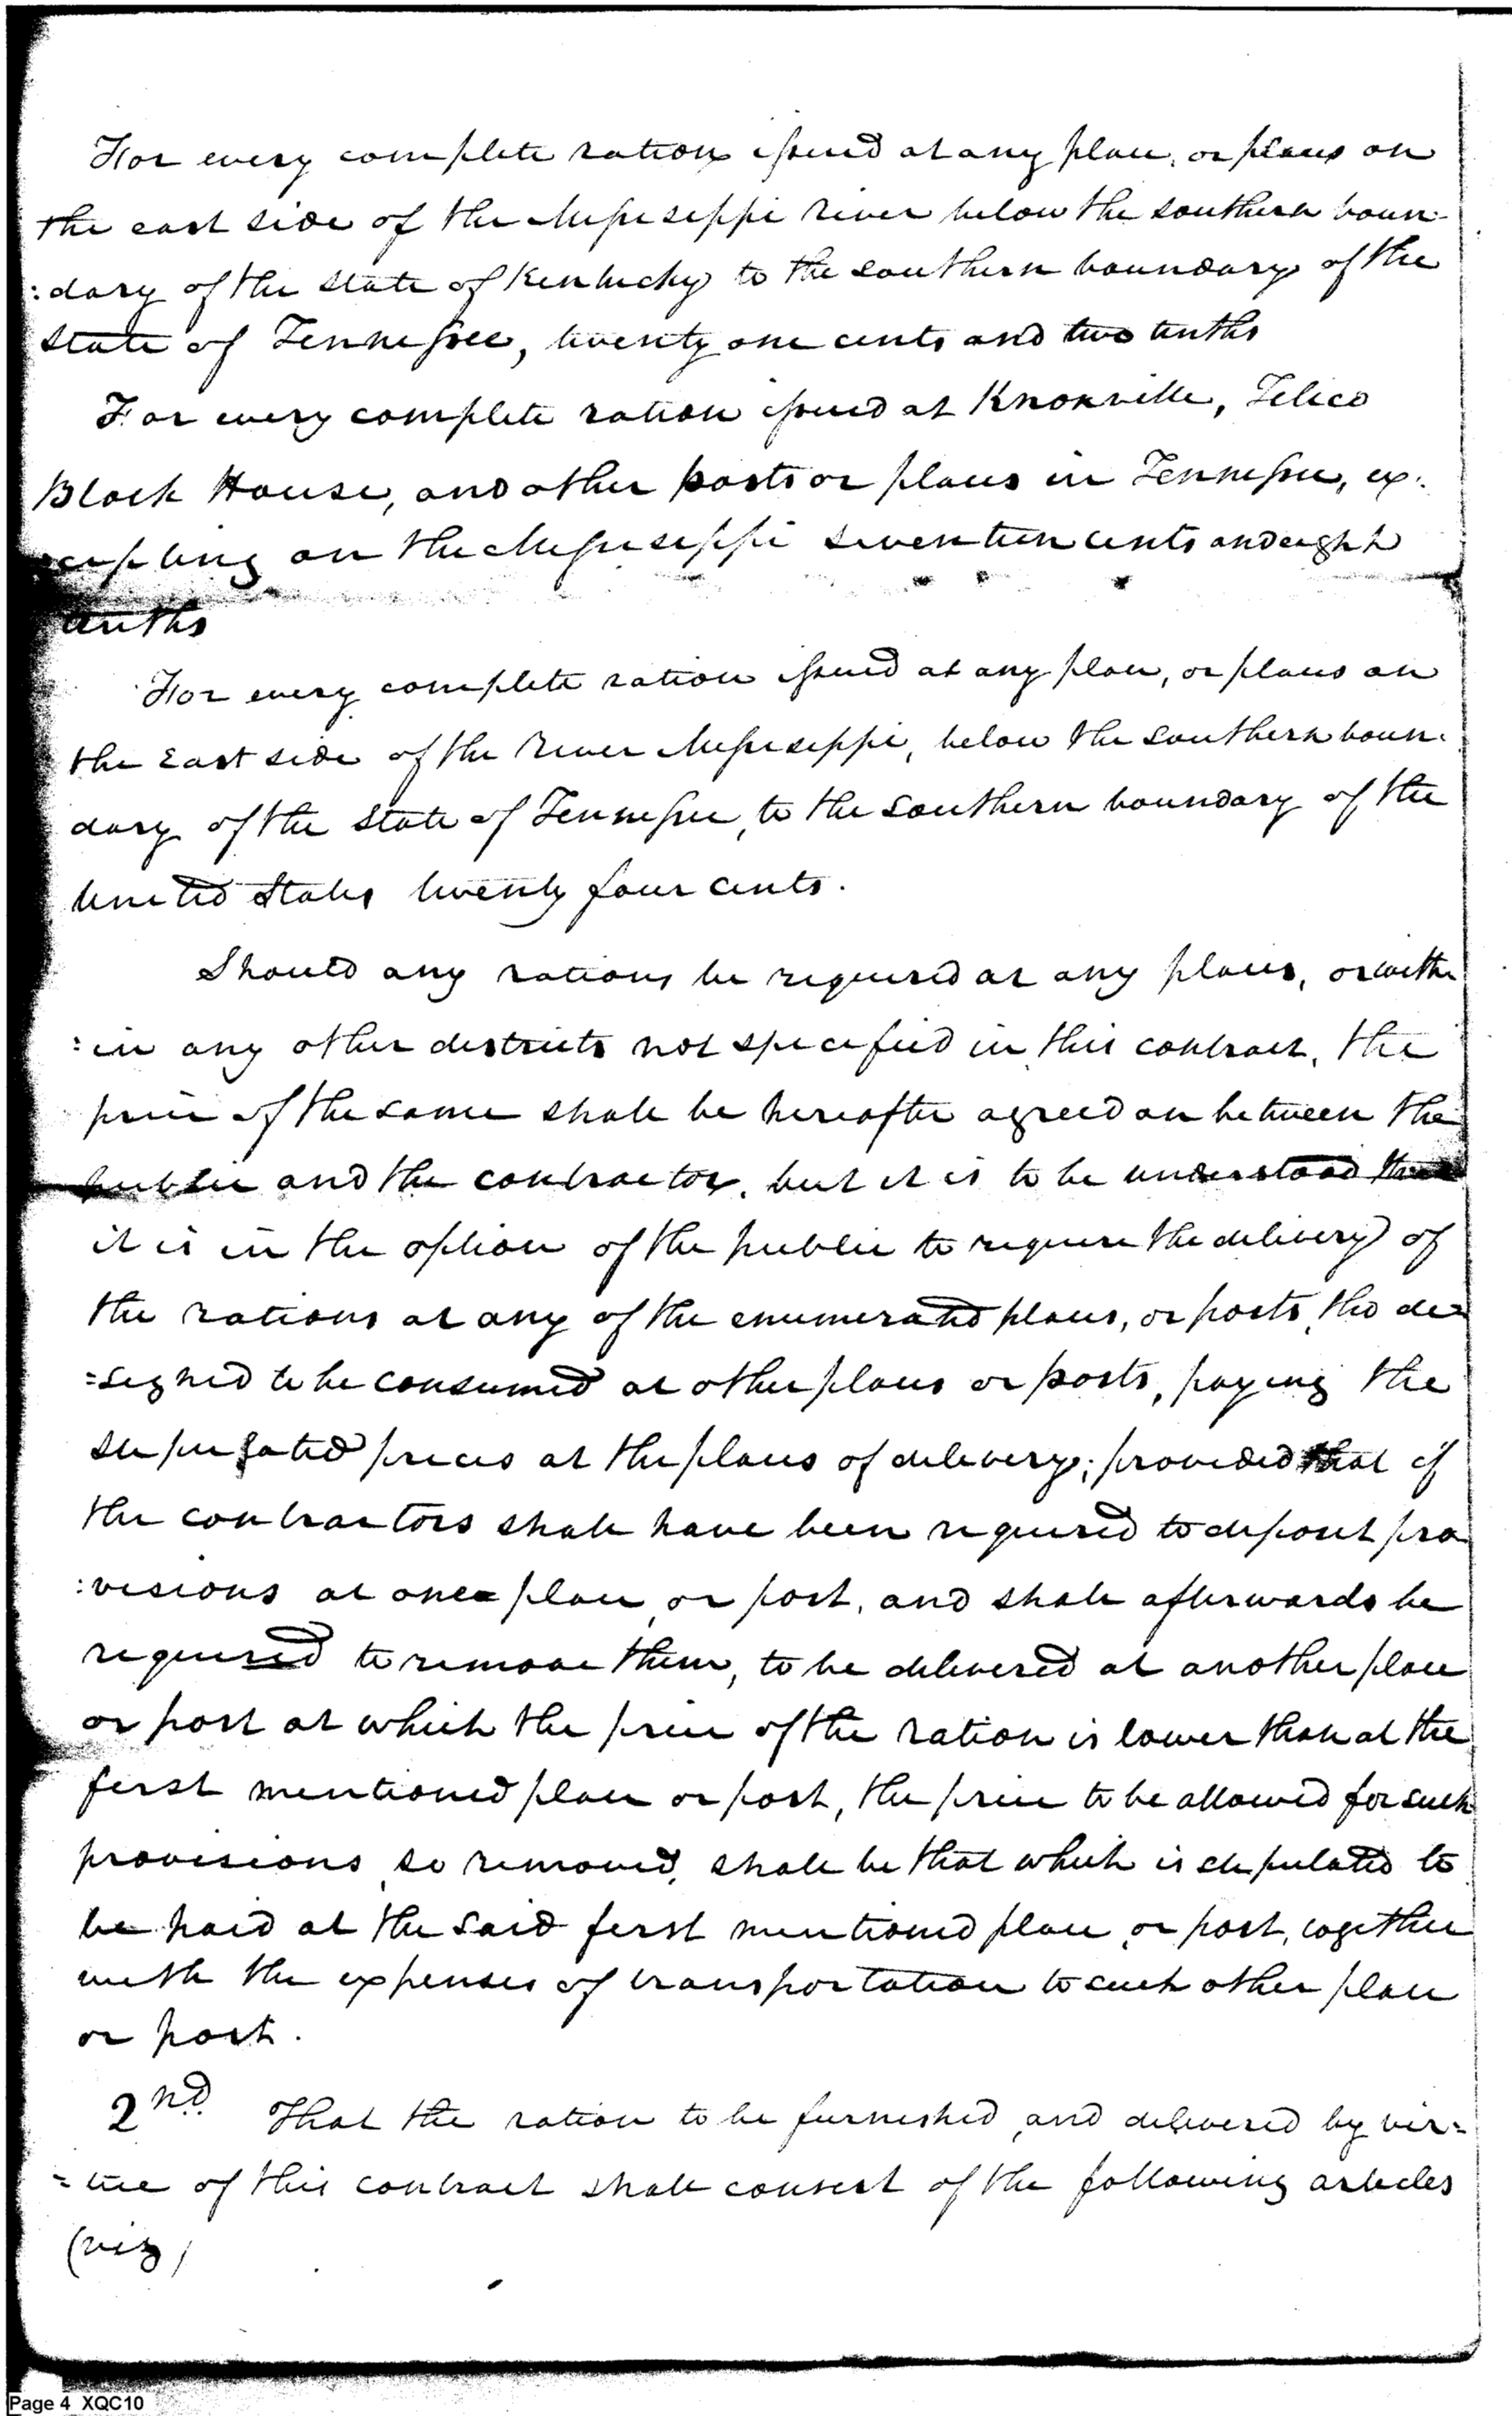 For every complete ration issued at any place, or places on
the east side of the Mississeppi river below the southern boun-
:dary of the state of Kentucky to the southern boundary of the
State of Tennessee, twenty one cents and two tenths
For every complete ration issued at Knoxville, Telico
Block House, and other posts or places in Tennessee, ex:
cepting on the Mississeppi seventeen cents and eight
tenths
For every complete ration issued at any place, or places on
the East side of the River Mississeppi, below the southern boun-
dary of the State of Tennessee, to the southern boundary of the
United States twenty four cents.
Should any rations be required at any places, or with
:in any other districts not specified in this contract, the
price of the same shall be hereafter agreed on between the
public and the contractor, but it is to be understood that
it is in the option of the public to require the delivery of
the rations at any of the enumerated places, or posts, tho de=
=signed to be consumed at other places or posts, paying the
stipulated prices at the places of delivery; provided that if
the contractors shall have been required to deposit pro
:visions at one place, or post, and shall afterwards be
required to remove them, to be delivered at another place
or post at which the price of the ration is lower than at the
first mentioned place or post, the price to be allowed for such
provisions, so removed, shall be that which is stipulated to
be paid at the said first mentioned place, or post, together
with the expenses of transportation to such other place
or post.
2nd. That the ration to be furnished, and delivered by vir=
=tue of this contract shall consist of the following articles
(viz)
Page 4 XQC10